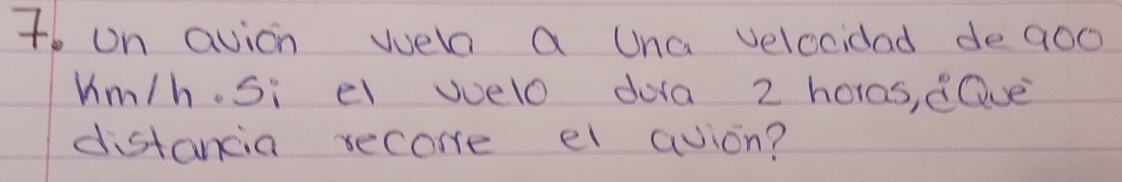 7. Un avión vuela a una velocidad de 900
Km/h. Si el vuelo dura 2 horas, ¿Qué
distancia recorre el avión?